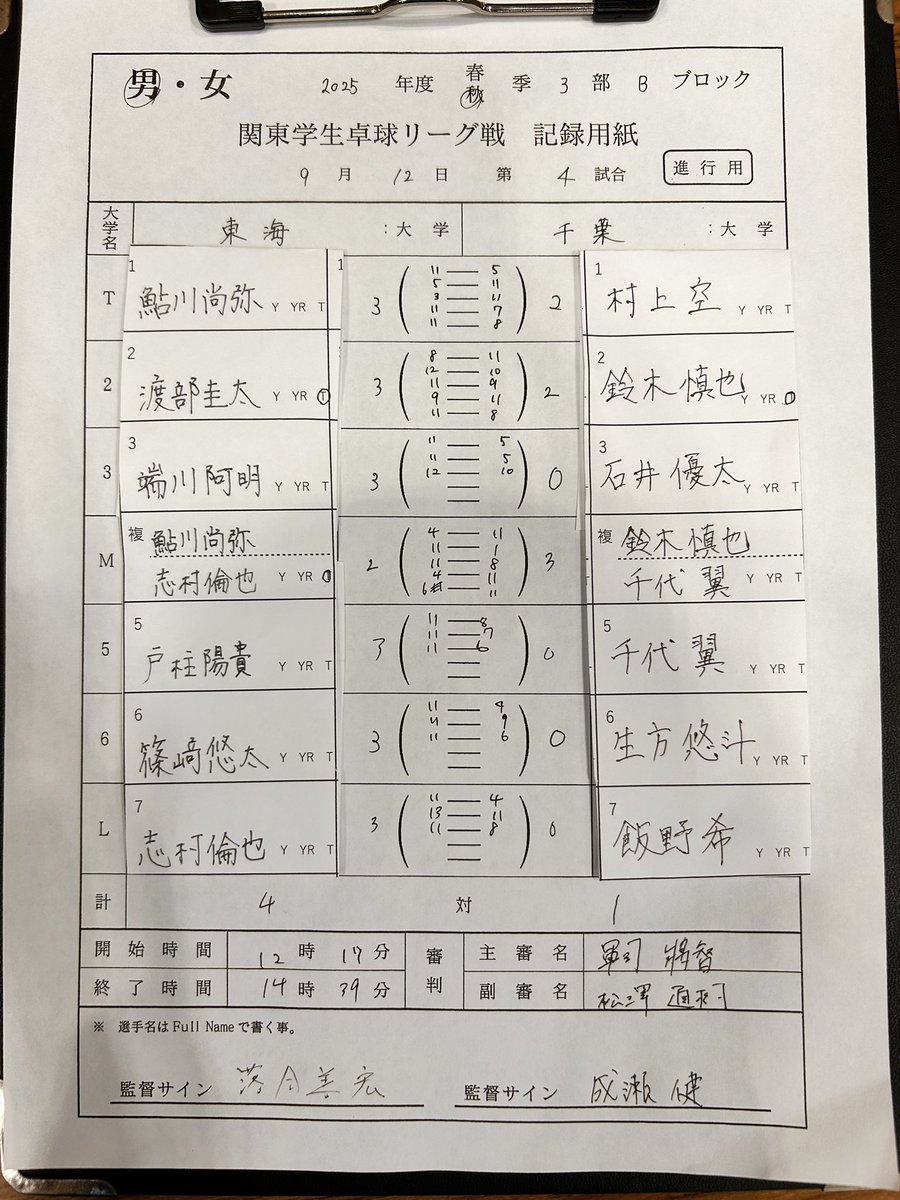 男・女 2025 年度 春 秋 季 3 部 B ブロック
関東学生卓球リーグ戦 記録用紙
9 月 12 日 第 4 試合 進行用
大学名 東海 :大学 千葉 :大学
T 1 鮎川尚弥 Y YR T 1 3 2 1 村上空 Y YR T
11 — 5
5 — 11
3 — 11
11 — 7
11 — 8
2 2 渡部圭太 Y YR T 3 2 2 鈴木慎也 Y YR
8 — 11
12 — 10
11 — 9
9 — 11
11 — 8
3 3 端川阿明 Y YR T 3 0 3 石井優太 Y YR T
11 — 5
11 — 5
12 — 10
M 複 鮎川尚弥 2 3 複 鈴木慎也
志村倫也 Y YR 千代翼 Y YR T
4 — 11
11 — 1
11 — 8
4 — 11
6 — 11
5 5 戸柱陽貴 Y YR T 3 0 5 千代翼 Y YR T
11 — 8
11 — 7
11 — 6
6 6 篠﨑悠太 Y YR T 3 0 6 生方悠斗 Y YR T
11 — 4
11 — 9
11 — 6
L 7 志村倫也 Y YR T 3 0 7 飯野希 Y YR T
11 — 4
13 — 11
11 — 8
計 4 対 1
開始時間 12 時 17 分 審判 主審名 軍司 將智
終了時間 14 時 39 分 副審名 松澤
※ 選手名はFull Nameで書く事。
監督サイン 落合美宏 監督サイン 成瀬健